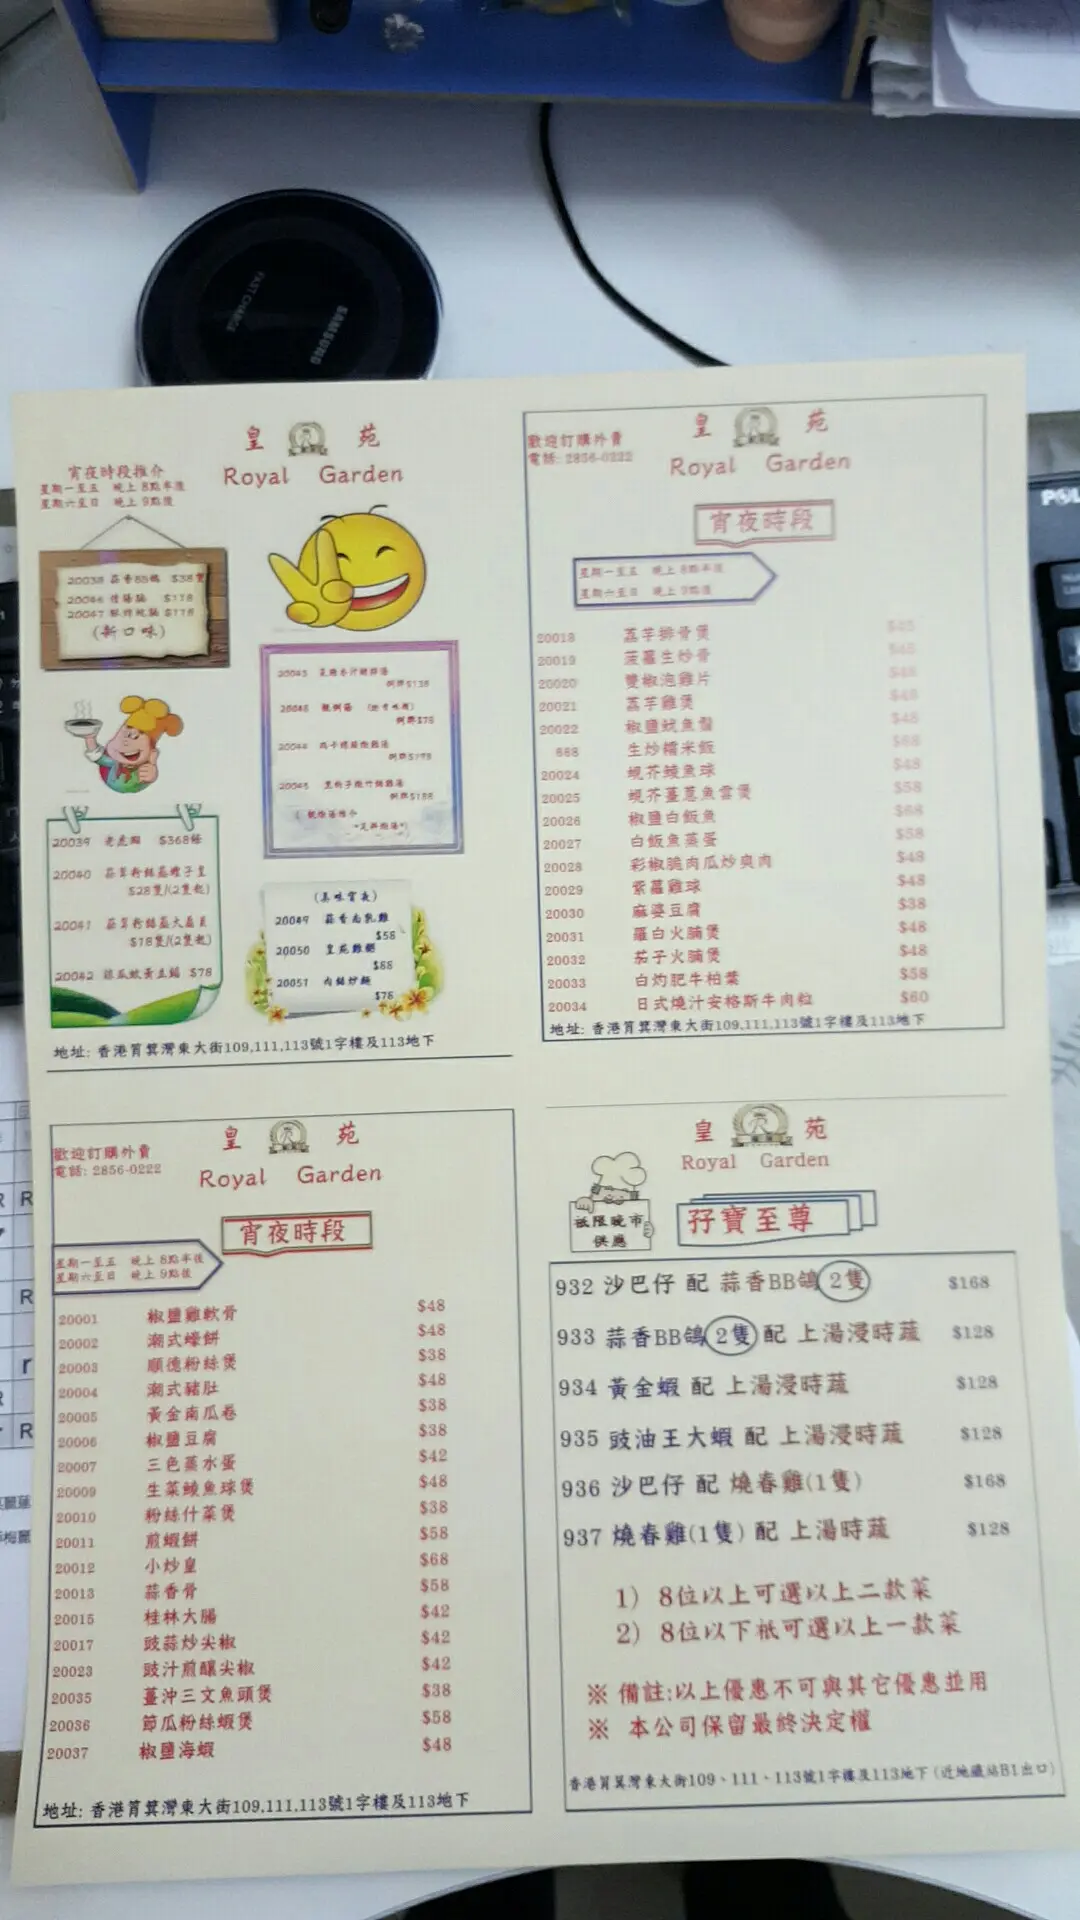 FAST CHARGE
SAMSUNG
皇 苑
Royal Garden
宵夜時段推介
星期一至五 晚上8點半後
星期六至日 晚上9點後
20038 蒜香BB鴿 $38隻
$118
(新口味)
20039 老虎 $368條
$28隻/(2隻起)
20041
$18隻/(2隻起)
20042 $78
20043
例牌$138
例牌$78
20044
20045
例牌$188
(美味宵夜)
20049 蒜香南乳雞
$58
20050 皇苑雞
$68
20051 肉絲炒麵
$78
地址: 香港筲箕灣東大街109,111,113號1字樓及113地下
皇 苑
歡迎訂購外賣
電話: 2856-0222
Royal Garden
宵夜時段
星期一至五 晚上8點半後
星期六至日 晚上9點後
20018 荔芋排骨煲
20019 菠蘿生炒骨
20020 雙椒泡雞片 $48
20021 荔芋雞煲 $48
20022 椒鹽魷魚鬚 $48
668 生炒糯米飯 $68
20024 蜆芥鯪魚球 $48
20025 蜆芥薑蔥魚雲煲 $58
20026 椒鹽白飯魚 $68
20027 白飯魚蒸蛋 $58
20028 彩椒脆肉瓜炒爽肉 $48
20029 紫蘿雞球 $48
20030 麻婆豆腐 $38
20031 羅白火腩煲 $48
20032 茄子火腩煲 $48
20033 白灼肥牛柏葉 $58
20034 日式燒汁安格斯牛肉粒 $60
地址: 香港筲箕灣東大街109,111,113號1字樓及113地下
皇 苑
歡迎訂購外賣
電話: 2856-0222
Royal Garden
宵夜時段
星期一至五 晚上8點半後
星期六至日 晚上9點後
20001 椒鹽雞軟骨 $48
20002 潮式蠔餅 $48
20003 順德粉絲煲 $38
20004 潮式豬肚 $48
20005 黃金南瓜卷 $38
20006 椒鹽豆腐 $38
20007 三色蒸水蛋 $42
20009 生菜鯪魚球煲 $48
20010 粉絲什菜煲 $38
20011 煎蝦餅 $58
20012 小炒皇 $68
20013 蒜香骨 $58
20015 桂林大腸 $42
20017 豉蒜炒尖椒 $42
20023 豉汁煎釀尖椒 $42
20035 薑沖三文魚頭煲 $38
20036 節瓜粉絲蝦煲 $58
20037 椒鹽海蝦 $48
地址: 香港筲箕灣東大街109,111,113號1字樓及113地下
皇 苑
Royal Garden
祗限晚市
供應
孖寶至尊
932 沙巴仔 配 蒜香BB鴿 2隻 $168
933 蒜香BB鴿 2隻 配 上湯浸時蔬 $128
934 黃金蝦 配 上湯浸時蔬 $128
935 豉油王大蝦 配 上湯浸時蔬 $128
936 沙巴仔 配 燒春雞(1隻) $168
937 燒春雞(1隻) 配 上湯時蔬 $128
1) 8位以上可選以上二款菜
2) 8位以下祇可選以上一款菜
※ 備註:以上優惠不可與其它優惠並用
※ 本公司保留最終決定權
香港筲箕灣東大街109、111、113號1字樓及113地下 (近地鐵站B1出口)